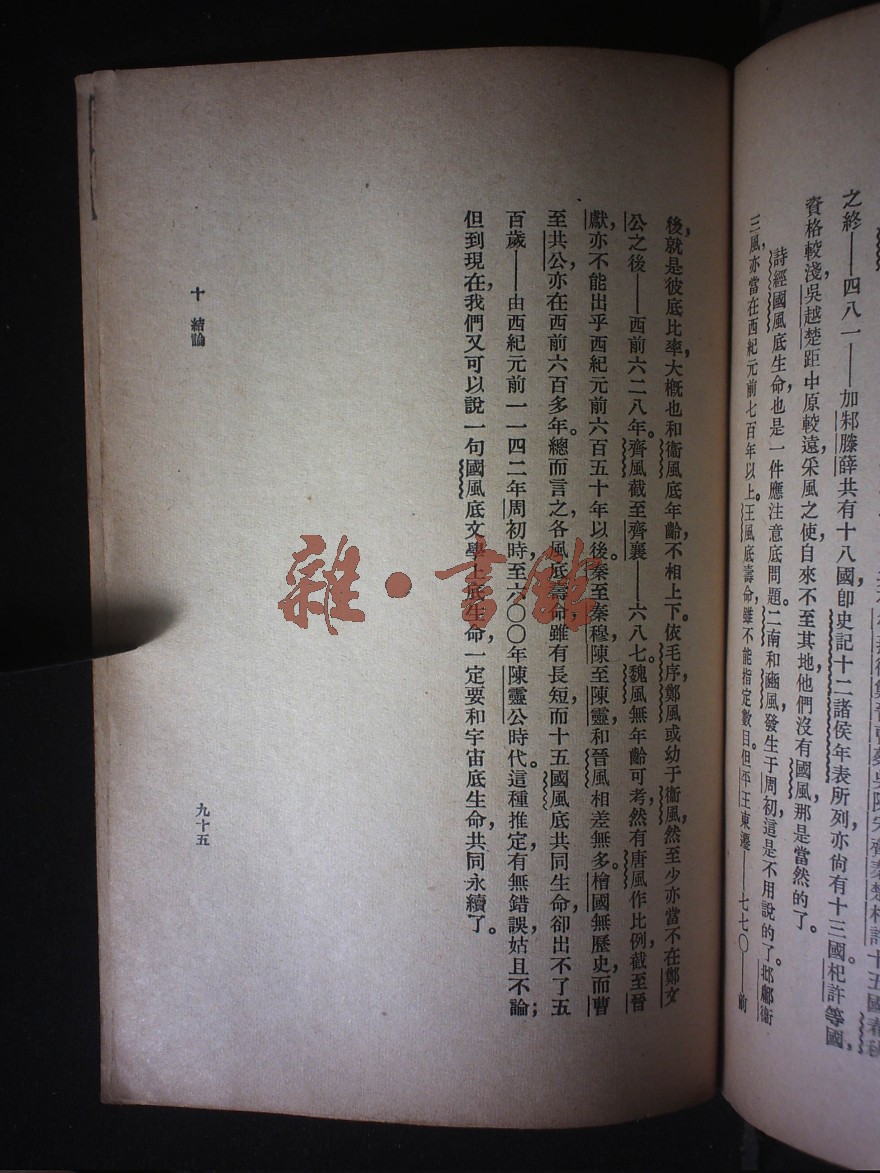 之終——四八一——加邾滕薛共有十八國，卽史記十二諸侯年表所列亦尙有十三國。杞許等國，
資格較淺，吳越楚距中原較遠，采風之使自來不至其地，他們沒有國風，那是當然的了。
詩經國風底生命也是一件應注意底問題。二南和豳風發生于周初，這是不用說的了。邶鄘衞
三風，亦當在西紀元前七百年以上。王風底壽命，雖不能指定數目。但平王東遷——七七〇——前
後，就是彼底比率，大槪也和衞風底年齡，不相上下。依毛序，鄭風或幼于衞風，然至少亦當不在鄭文
公之後——西前六二八年。齊風截至齊襄——六八七。魏風無年齡可考，然有唐風作比例，截至晉
獻，亦不能出乎西紀元前六百五十年以後。秦至秦穆，陳至陳靈，和晉風相差無多。檜國無歷史，而曹
至共公，亦在西前六百多年。總而言之，各風底壽命，雖有長短，而十五國風底共同生命，卻出不了五
百歲——由西紀元前一一四二年周初時，至六〇〇年陳靈公時代。這種推定，有無錯誤，姑且不論；
但到現在，我們又可以說一句，國風底文學上底生命，一定要和宇宙底生命，共同永續了。
十 結論
九十五
雜·書館